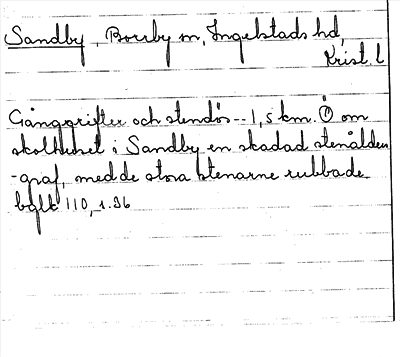 Sandby, Borrby sn, Ingelstads hd,
Krist. l
Gånggrifter och stendös -- 1,5 km. Ö om
skolhuset i Sandby en skadad stenålders
-graf, med de stora stenarne rubbade
110, s. 36